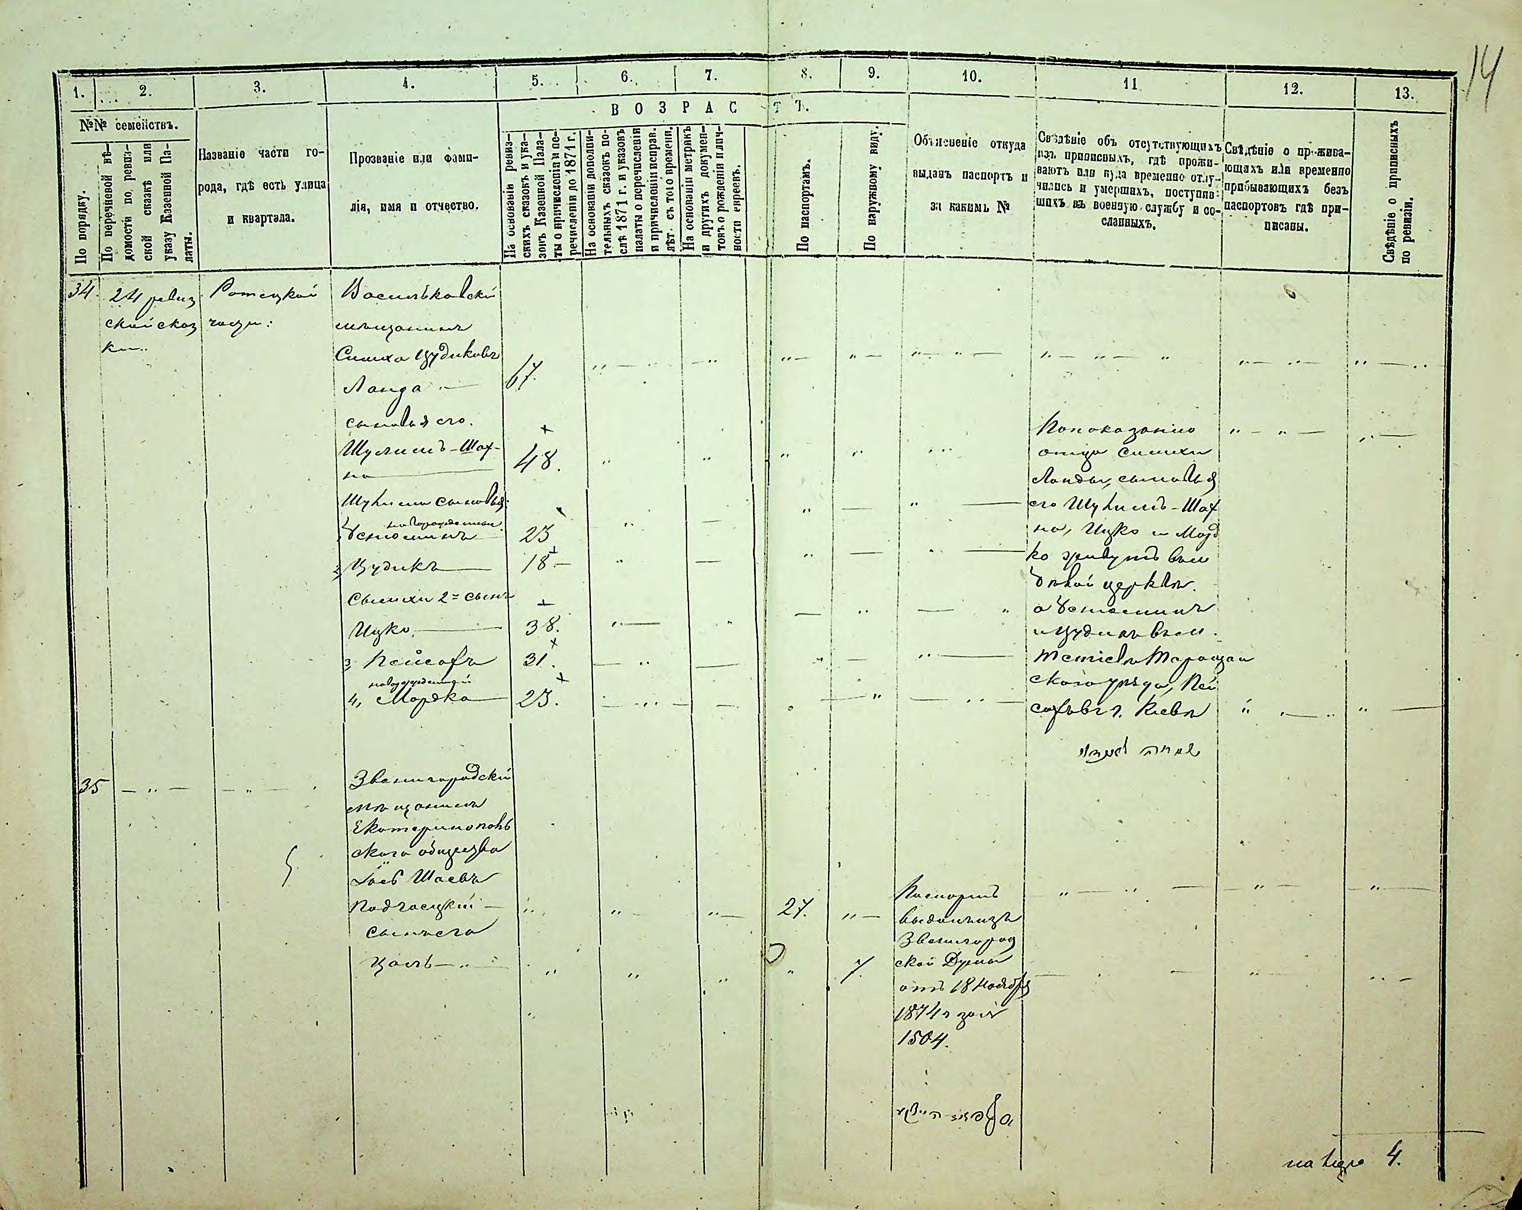 14
1.
2.
3.
4.
5.
6.
7.
8.
9.
10.
11
12.
13.
№№ семействъ.
ВОЗРАСТЪ.
По порядку.
По перечневой вѣ-
домости по ревиз-
ской сказкѣ или
указу Казенной Па-
латы.
Названіе части го-
рода, гдѣ есть улица
и квартала.
Прозваніе или фами-
лія, имя и отчество.
На основаніи ревиз-
скихъ сказокъ и ука-
зовъ Казенной Пала-
ты о причисленіи и пе-
речисленіи до 1871 г.
На основаніи дополни-
тельныхъ сказокъ по-
слѣ 1871 г. и указовъ
палаты о перечисленіи
и причисленіи исправ.
лѣт. съ того времени.
На основаніи метрикъ
и другихъ докумен-
товъ о рожденіи и лич-
ности евреевъ.
По паспортамъ.
По наружному виду.
Объясненіе откуда
выданъ паспортъ и
за какимъ №
Свѣдѣніе объ отсутствующихъ
изъ приписныхъ, гдѣ прожи-
ваютъ или куда временно отлу-
чились и умершихъ, поступив-
шихъ въ военную службу и со-
сланныхъ.
Свѣдѣніе о прожива-
ющихъ или временно
прибывающихъ безъ
паспортовъ гдѣ при-
писаны.
Свѣдѣніе о приписныхъ
по ревизіи.
34
24 ревиз
ской сказ
ки
части:
Васильковскій
мѣщанинъ
Симха Цудиковъ
Ланда 67.
сыновья его.
Шулимъ-Шах-
на 48.
Шулима сыновья
новорожденный
23
2, Цудикъ 18
Симхи 2й сынъ
Ицко 38.
3 Пейсахъ 31.
новорожденный
4, Мордко 23.
По показанію
отца Симхи
Ланды, сыновья
его Шулимъ-Шах
на, Ицко и Морд
ко живутъ въ м.
Бѣлой церкви
а
и Цудикъ въ м.
Тетіевъ Таращан
скаго уѣзда, Пей
сахъ в г. Кіевѣ
35
Звенигородскій
мѣщанинъ
Екатеринополь
скаго общества
Іось Шаевъ
27.
сынъ его
7.
Паспортъ
выданъ изъ
Звенигород
ской Думы
отъ 18 Ноября
1874 г за №
1504.
на лицо 4.